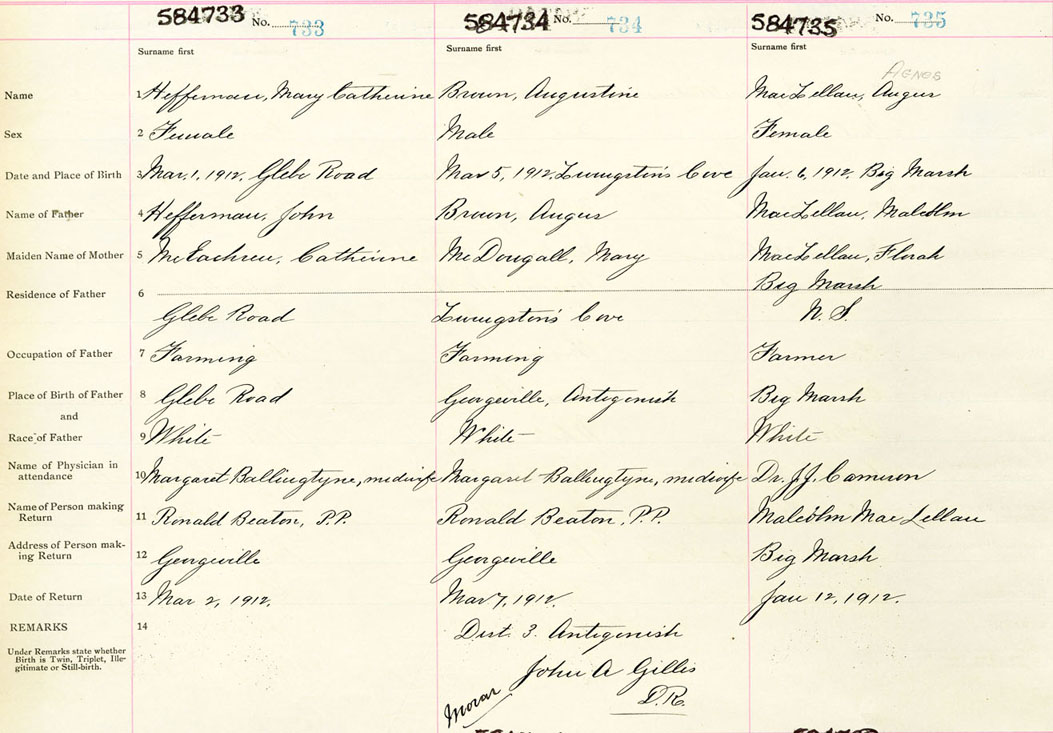 584733 No. 733 584734 No. 734 584735 No. 735
Surname first Surname first Surname first
AGNES
Name 1 Heffernan, Mary Catherine Brown, Augustine MacLellan, Angus
Sex 2 Female Male Female
Date and Place of Birth 3 Mar. 1, 1912, Glebe Road Mar 5, 1912, Livingston's Cove Jan. 6, 1912, Big Marsh
Name of Father 4 Hefferman, John Brown, Angus MacLellan, Malcolm
Maiden Name of Mother 5 McEachren, Catherine McDougall, Mary MacLellan, Florah
Big Marsh
Residence of Father 6
Glebe Road Livingston's Cove N. S.
Occupation of Father 7 Farming Farming Farmer
Place of Birth of Father 8 Glebe Road Georgeville, Antigonish Big Marsh
and
Race of Father 9 White White White
Name of Physician in
attendance 10 Margaret Ballingtyne, midwife Margaret Ballingtyne, midwife Dr. J. J. Cameron
Name of Person making
Return 11 Ronald Beaton, P.P. Ronald Beaton, P.P. Malcolm MacLellan
Address of Person mak-
ing Return 12 Georgeville Georgeville Big Marsh
Date of Return 13 Mar 2, 1912, Mar 7, 1912, Jan 12, 1912.
REMARKS 14 Dist. 3. Antigonish
Under Remarks state whether
Birth is Twin, Triplet, Ille-
gitimate or Still-birth.
John A Gillis
D.R.
Morar